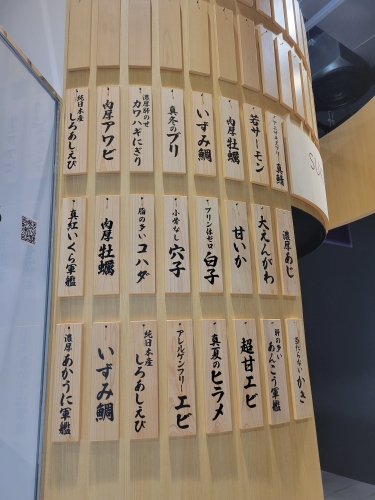 純日本産
しろあしえび
肉厚アワビ
濃厚肝のせ
カワハギにぎり
真冬の
ブリ
いずみ鯛
肉厚
牡蠣
若サーモン
アニサキスフリー
真鯖
真紅いくら軍艦
肉厚
牡蠣
脂の多い
コハダ
小骨なし
穴子
プリン体ゼロ
白子
甘いか
大えんがわ
濃厚あじ
濃厚
あかうに軍艦
いずみ鯛
純日本産
しろあしえび
アレルゲンフリー
エビ
真夏の
ヒラメ
超甘エビ
肝の多い
あんこう軍艦
あたらない
かき
SU